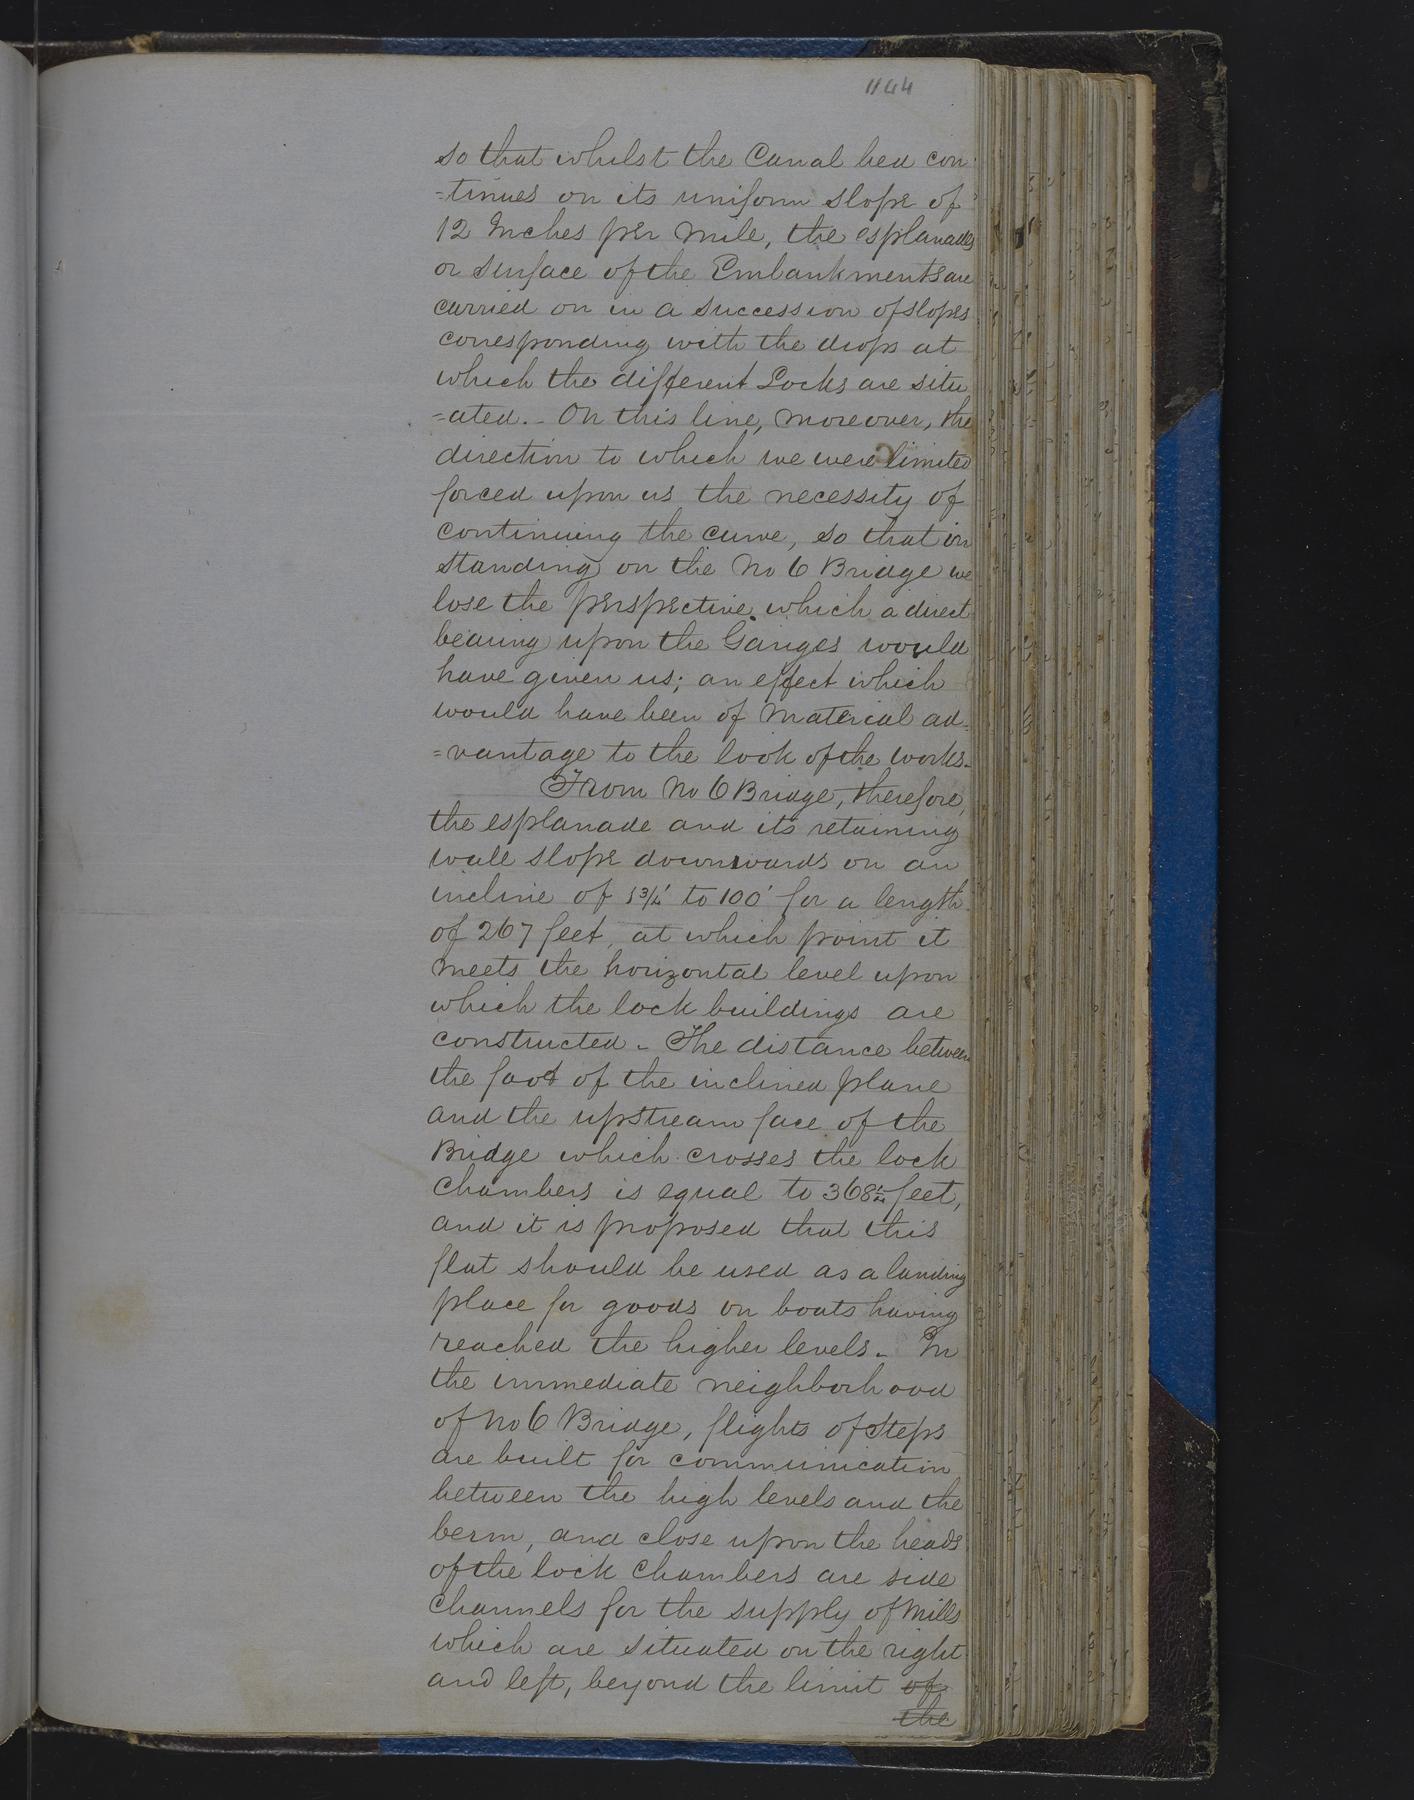 1144
so that whilst the Canal bed con
=tinues on its uniform slope of
12 Inches per mile, the esplanades
or surface of the Embankments are
carried on in a succession of slopes
corresponding with the drops at
which the different Locks are situ
=ated.- On this line, moreover, the
direction to which we were limited
forced upon us the necessity of
continuing the curve, so that in
standing on the No 6 Bridge we
lose the perspective which a direct
bearing upon the Ganges would
have given us; an effect which
would have been of material ad=
=vantage to the look of the works.
From No 6 Bridge, therefore,
the esplanade and its retaining
wall slope downwards on an
incline of 1¾' to 100' for a length
of 267 feet, at which point it
meets the horizontal level upon
which the lock buildings are
constructed - The distance between
the foot of the inclined plane
and the upstream face of the
Bridge which crosses the lock
Chambers is equal to 368½ feet,
and it is proposed that this
flat should be used as a landing
place for goods on boats having
reached the higher levels. In
the immediate neighborhood
of No 6 Bridge, flights of steps
are built for communication
between the high levels and the
berm, and close upon the heads
of the lock Chambers are side
Channels for the supply of Mills
which are situated on the right
and left, beyond the limit of
the